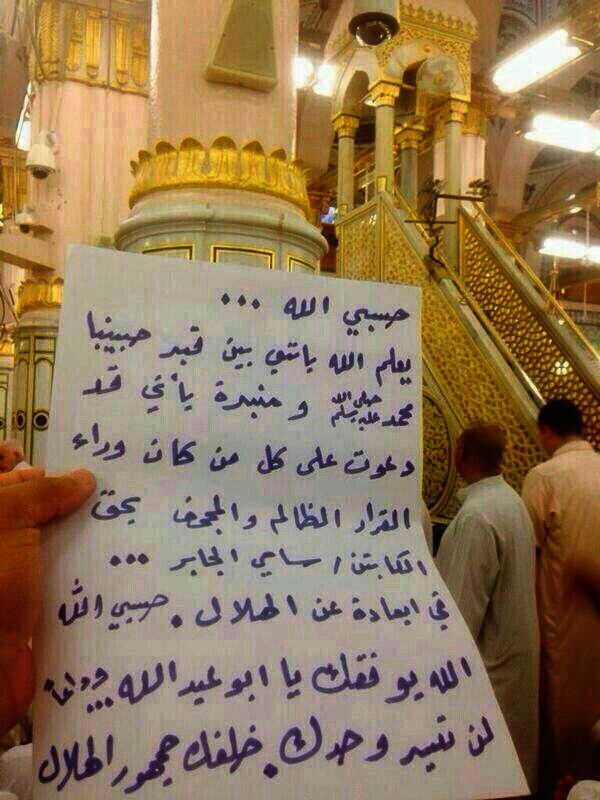 حسبي الله ...
يعلم الله بانني بين قبر حبيبنا
محمد صلى الله عليه وسلم و منبرة بأني قد
دعوت على كل من كان وراء
القرار الظالم والمجحف بحق
الكابتن / سامي الجابر ...
في ابعادة عن الهلال . حسبي الله
الله يوفقك يا ابو عبدالله ... وداعاً
لن تسير وحدك . خلفك جمهور الهلال